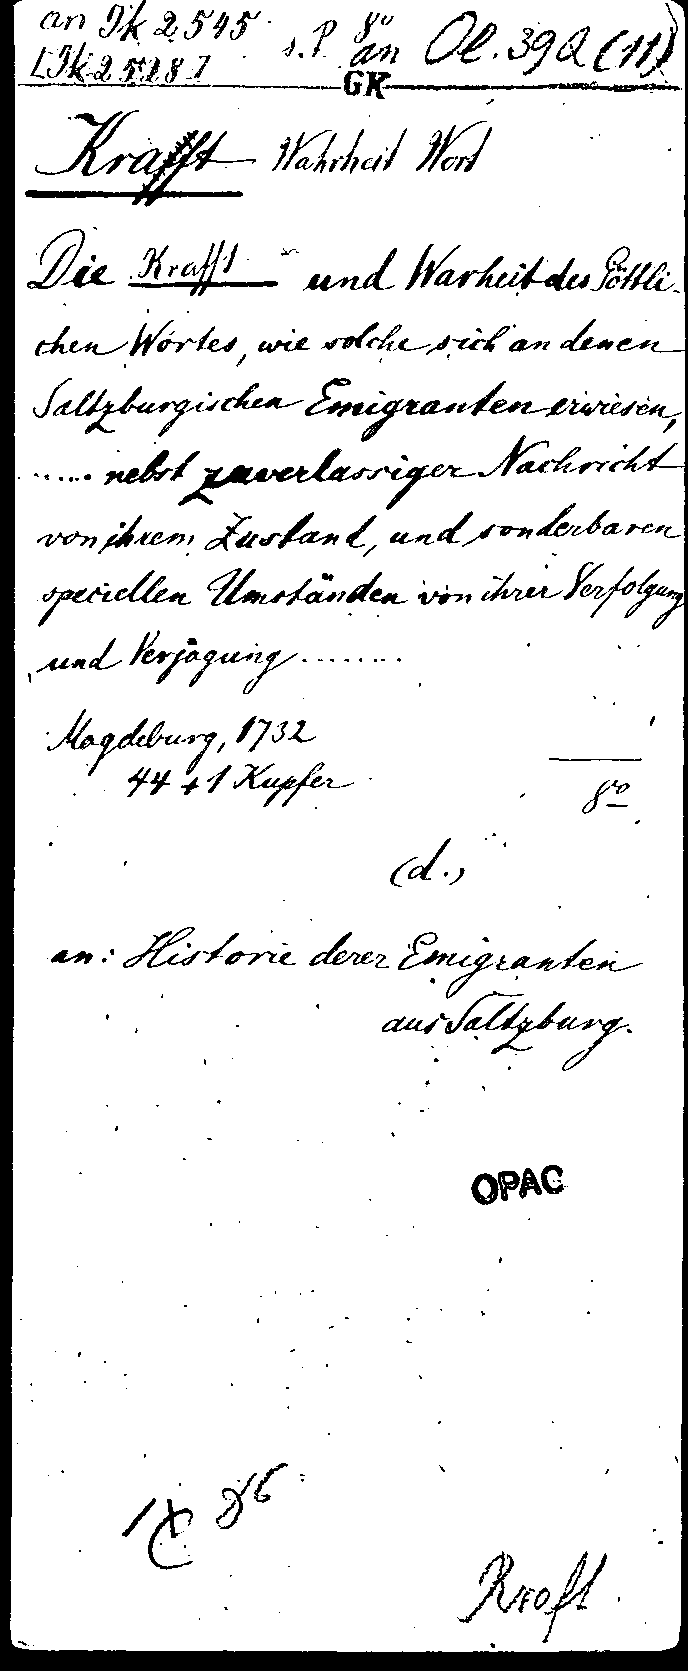 an Ik 2 545
s. P 8°
an Ol. 39a (11)
GK
Krafft Wahrheit Wort
Die Krafft und Warheit des Göttli-
chen Wortes, wie solche sich an denen
Saltzburgischen Emigranten erwiesen,
...... nebst zuverlassiger Nachricht
von ihrem Zustand, und sonderbaren
speciellen Umständen von ihrer Verfolgung
und Verjagung ........
Magdeburg, 1732
44 + 1 Kupfer
8°
(d.,
an: Historie derer Emigranten
aus Saltzburg.
OPAC